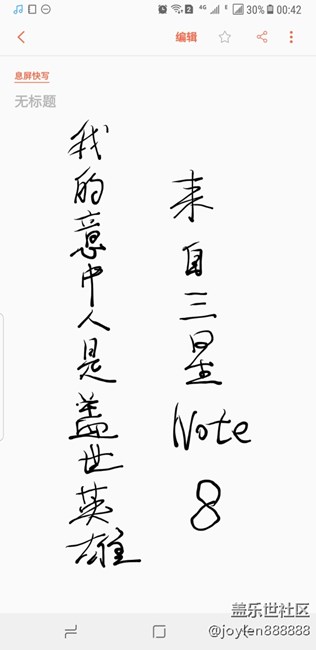 4G E 30% 00:42
编辑
息屏快写
无标题
我的意中人是盖世英雄
来自三星Note 8
盖乐世社区
@joyten888888